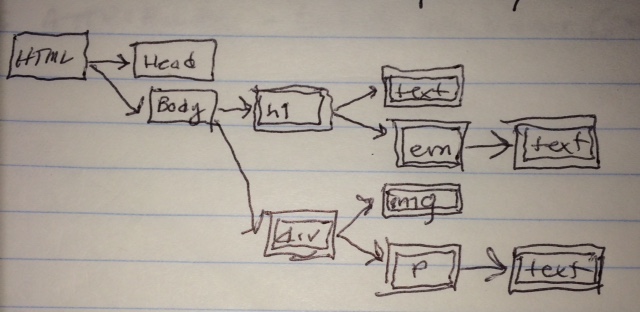 HTML
Head
Body
h1
text
em
text
div
img
p
text